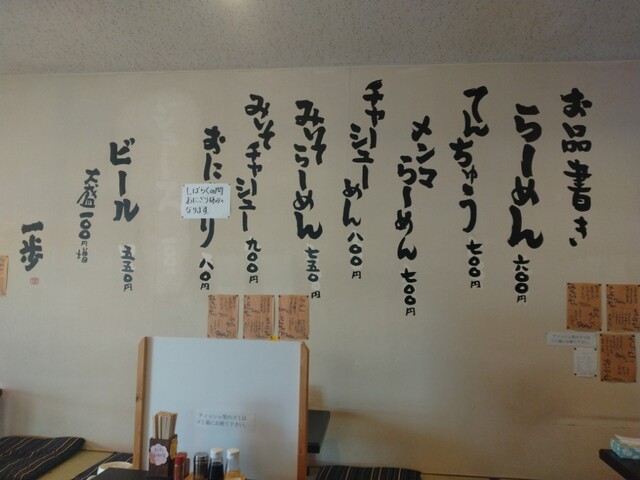 お品書き
らーめん 六〇〇円
てんちゅう 七〇〇円
メンマらーめん 七〇〇円
チャーシューめん 八〇〇円
みそらーめん 七五〇円
みそチャーシュー 九〇〇円
おにり 八〇円
しばらくの間
おにぎり休みに
なります
ビール 五五〇円
大盛 一〇〇円増
一歩
ティッシュ等のゴミは
ゴミ箱にお捨て下さい。